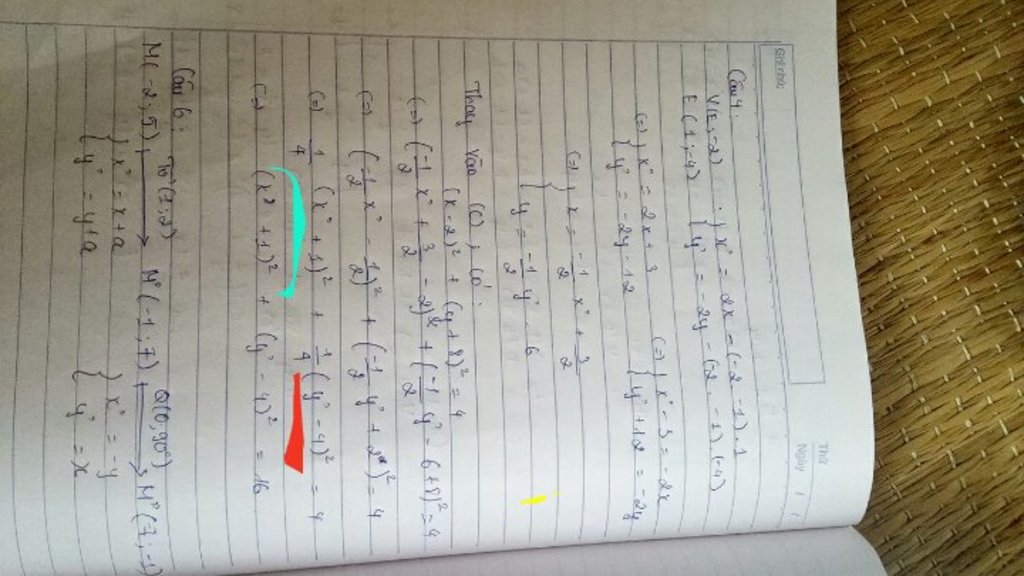 Ghi chú:
Thứ
Ngày / /
Câu 4.
V(E,-2) : { x' = 2x - (-2 - 1).1
E(1,-4) { y' = -2y - (-2 - 1).(-4)
(=) { x' = 2x + 3 (=) { x' - 3 = -2x
{ y' = -2y - 12 { y' + 12 = -2y
(=) { x = -1/2 x' + 3/2
{ y = -1/2 y' - 6
Thay vào (C) có:
(x-2)² + (y+8)² = 4
(=) (-1/2 x' + 3/2 - 2)² + (-1/2 y' - 6 + 8)² = 4
(=) (-1/2 x' - 1/2)² + (-1/2 y' + 2)² = 4
(=) 1/4 (x' + 1)² + 1/4 (y' - 4)² = 4
(=) (x' + 1)² + (y' - 4)² = 16
Câu 6:
M(-2,5) M'(-1,7) Q(0,90°) M''(7,-1)
{ x' = x + a { x' = -y
{ y' = y + a { y' = x